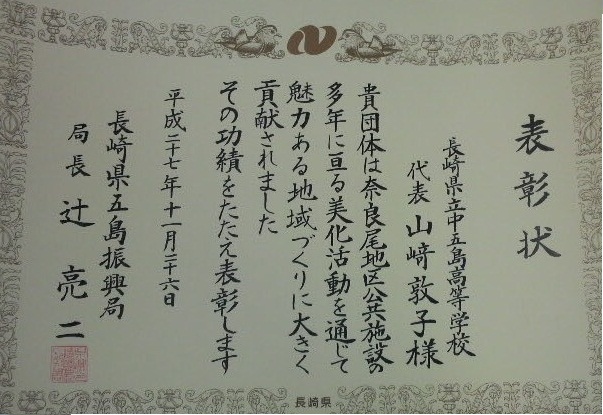 表彰状
長崎県立中五島高等学校
代表 山﨑敦子様
貴団体は奈良尾地区公共施設の
多年に亘る美化活動を通じて
魅力ある地域づくりに大きく
貢献されました
その功績をたたえ表彰します
平成二十七年十一月二十六日
長崎県五島振興局
局長 辻 亮二
長崎県